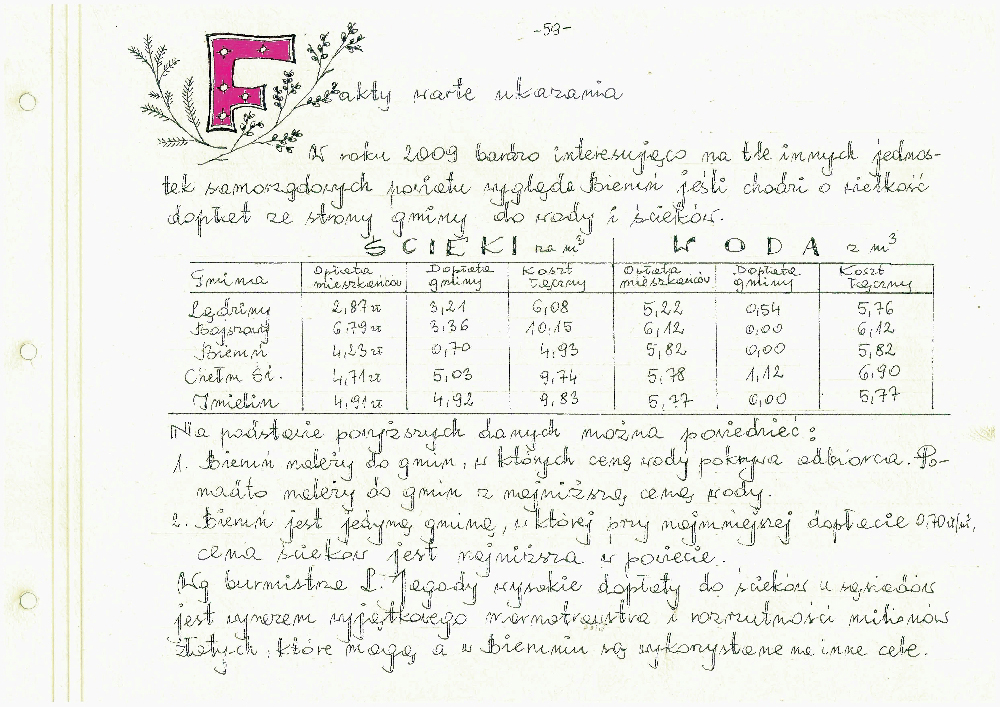 -59-
Fakty warte ukazania
W roku 2009 bardzo interesująco na tle innych jednos-
tek samorządowych powiatu wygląda Bieruń jeśli chodzi o wielkość
dopłat ze strony gminy do wody i ścieków.
ŚCIEKI za m³ WODA z m³
Gmina Opłata mieszkańców Dopłata gminy Koszt łączny Opłata mieszkańców Dopłata gminy Koszt łączny
Lędziny 2,87 zł 3,21 6,08 5,22 0,54 5,76
Bojszowy 6,79 zł 3,36 10,15 6,12 0,00 6,12
Bieruń 4,23 zł 0,70 4,93 5,82 0,00 5,82
Chełm Śl. 4,71 zł 5,03 9,74 5,78 1,12 6,90
Imielin 4,91 zł 4,92 9,83 5,77 0,00 5,77
Na podstawie powyższych danych można powiedzieć:
1. Bieruń należy do gmin, w których cenę wody pokrywa odbiorca. Po-
nadto należy do gmin z najniższą ceną wody.
2. Bieruń jest jedyną gminą, w której przy najmniejszej dopłacie 0,70 zł/m³,
cena ścieków jest najniższa w powiecie.
Wg burmistrza L. Jagody wysokie dopłaty do ścieków u sąsiadów
jest wyrazem wyjątkowego marnotrawstwa i rozrzutności milionów
złotych, które mogą, a w Bieruniu są wykorzystane na inne cele.